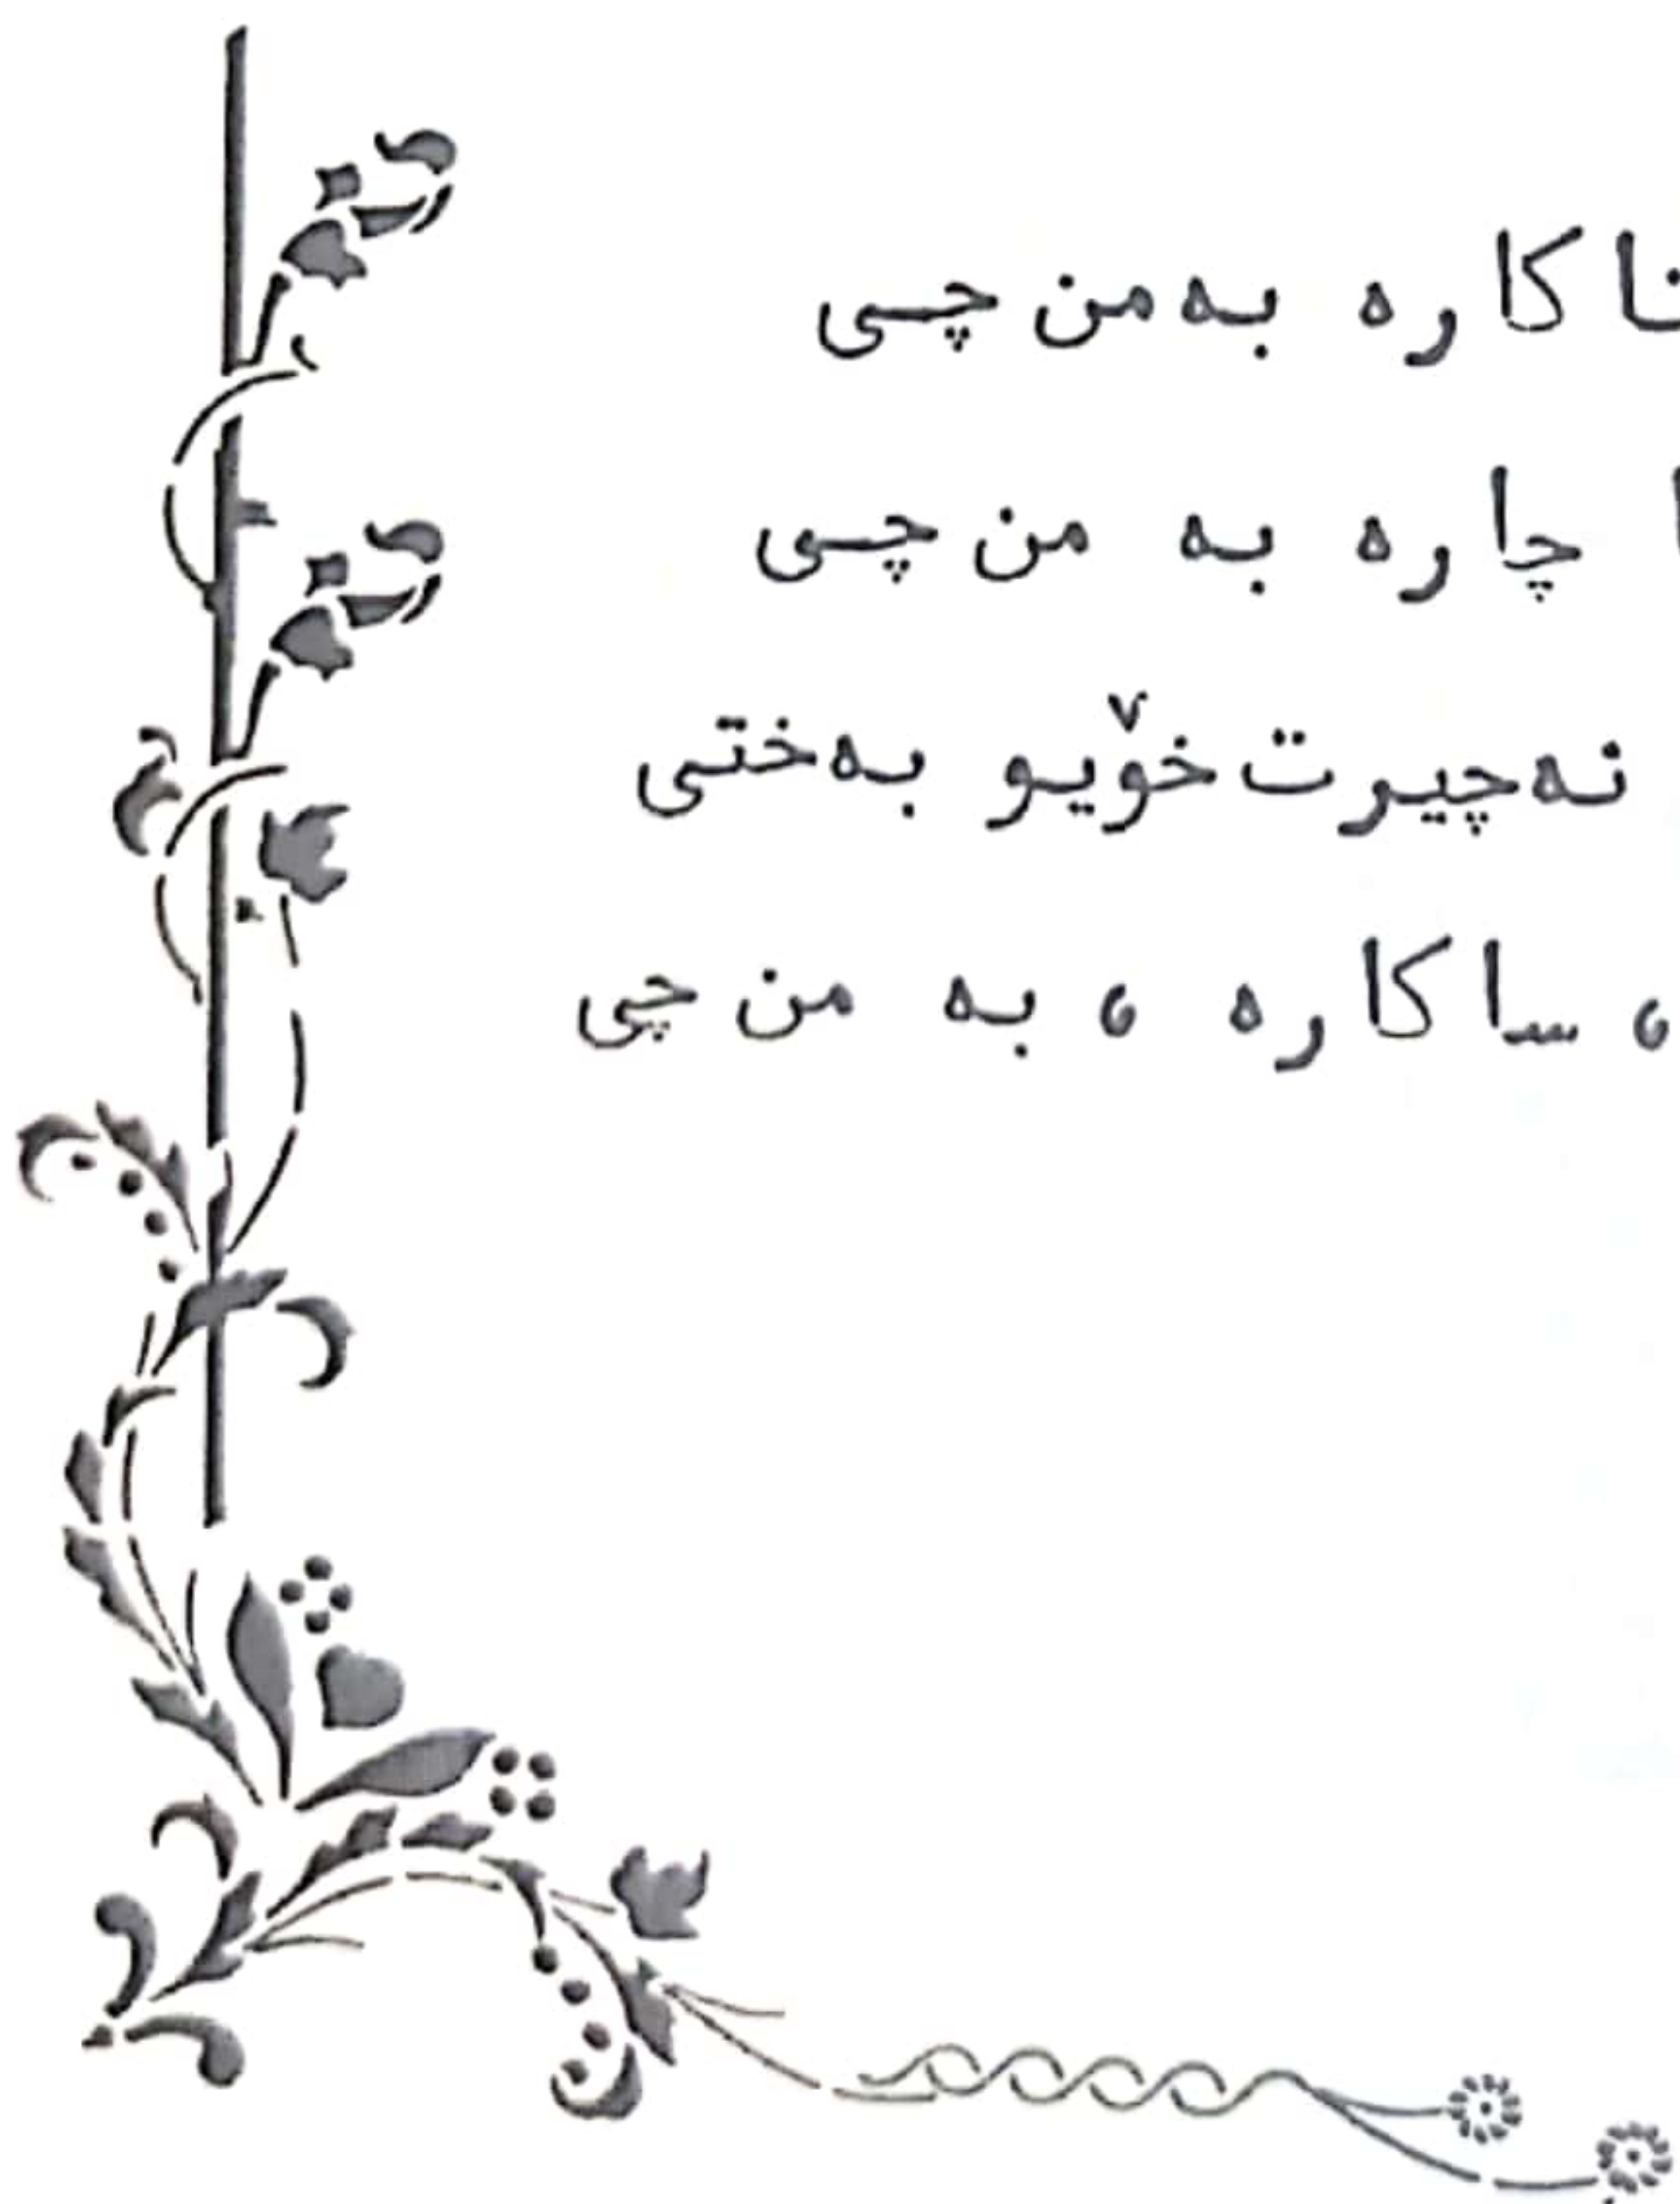 نا کاره به‌من چی
چاره به من چی
نه‌چیرت خۆیو به‌ختی
، ساکاره ، به من چی